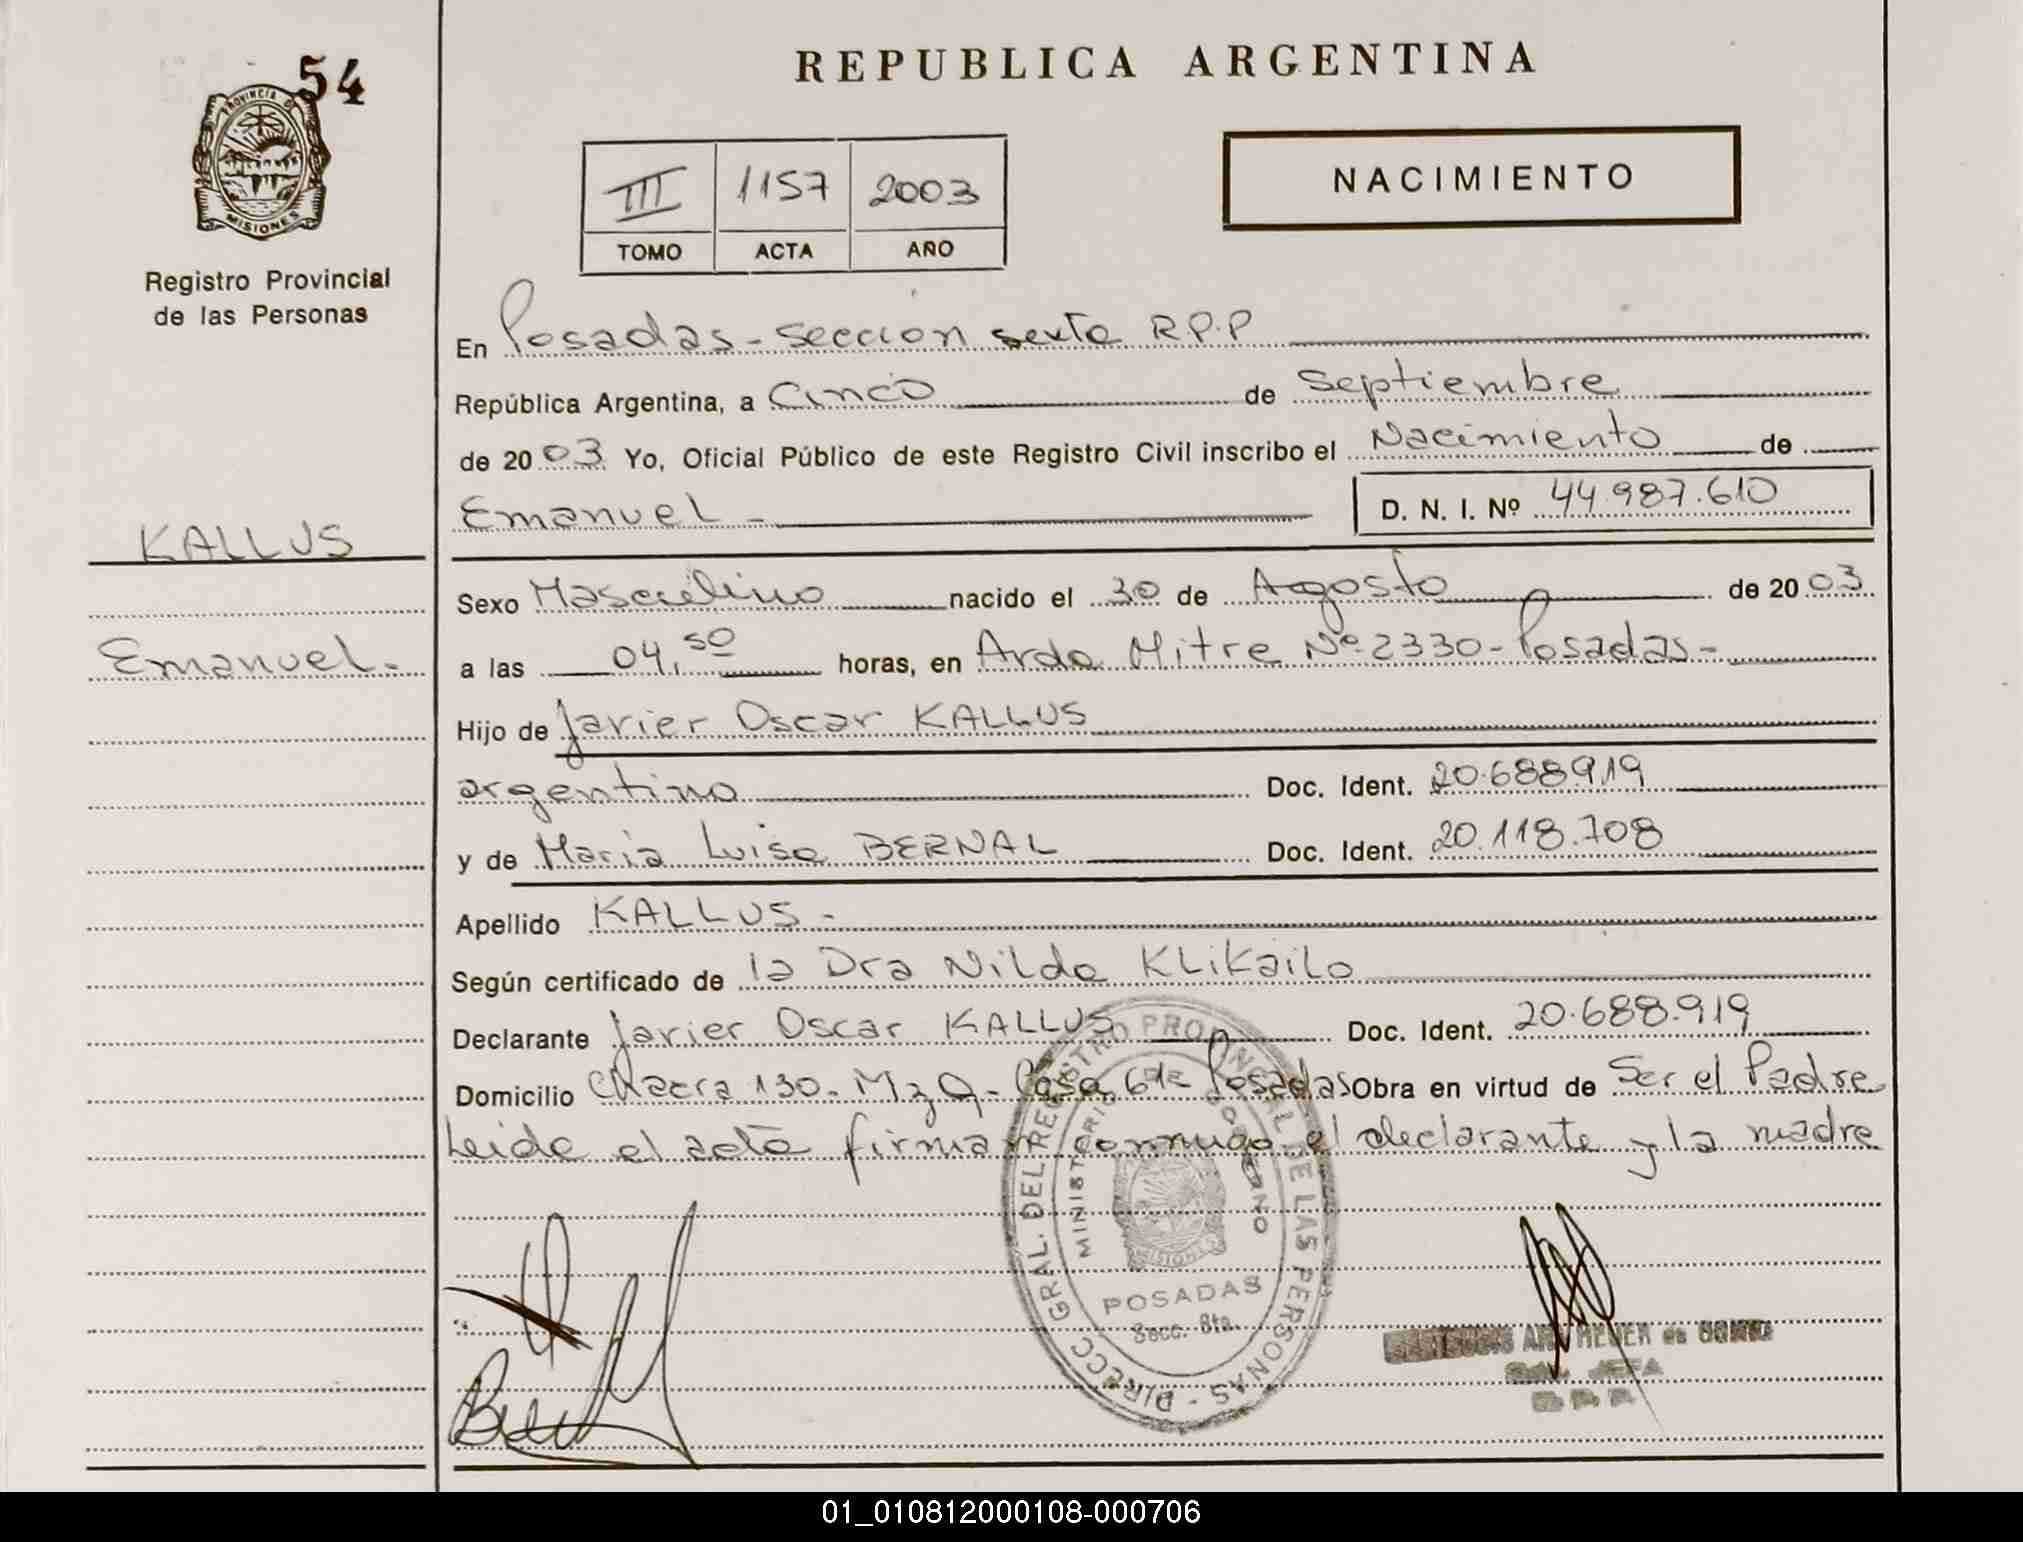 54
PROVINCIA DE
MISIONES
Registro Provincial
de las Personas
KALLUS
Emanuel.-
REPUBLICA ARGENTINA
NACIMIENTO
III 1157 2003
TOMO ACTA AÑO
En Posadas - seccion sexta R.P.P
República Argentina, a Cinco de Septiembre
de 2003 Yo, Oficial Público de este Registro Civil inscribo el Nacimiento de
Emanuel - D. N. I. Nº 44.987.610
Sexo Masculino nacido el 30 de Agosto de 2003
a las 04,50 horas, en Avda Mitre Nº 2330 - Posadas -
Hijo de Javier Oscar KALLUS
argentino Doc. Ident. 20.688.919
y de Maria Luisa BERNAL Doc. Ident. 20.118.708
Apellido KALLUS -
Según certificado de la Dra Nilda KLiKailo
Declarante Javier Oscar KALLUS Doc. Ident. 20.688.919
Domicilio Chacra 130 - Mz Q - Casa 61 - Posadas Obra en virtud de Ser el Padre
Leida el acta firman conmigo el declarante y la madre
DIRECC GRAL. DEL REGISTRO PROVINCIAL DE LAS PERSONAS -
MINISTERIO DE GOBIERNO
MISIONES
POSADAS
Secc. 6ta.
JEFA
01_010812000108-000706